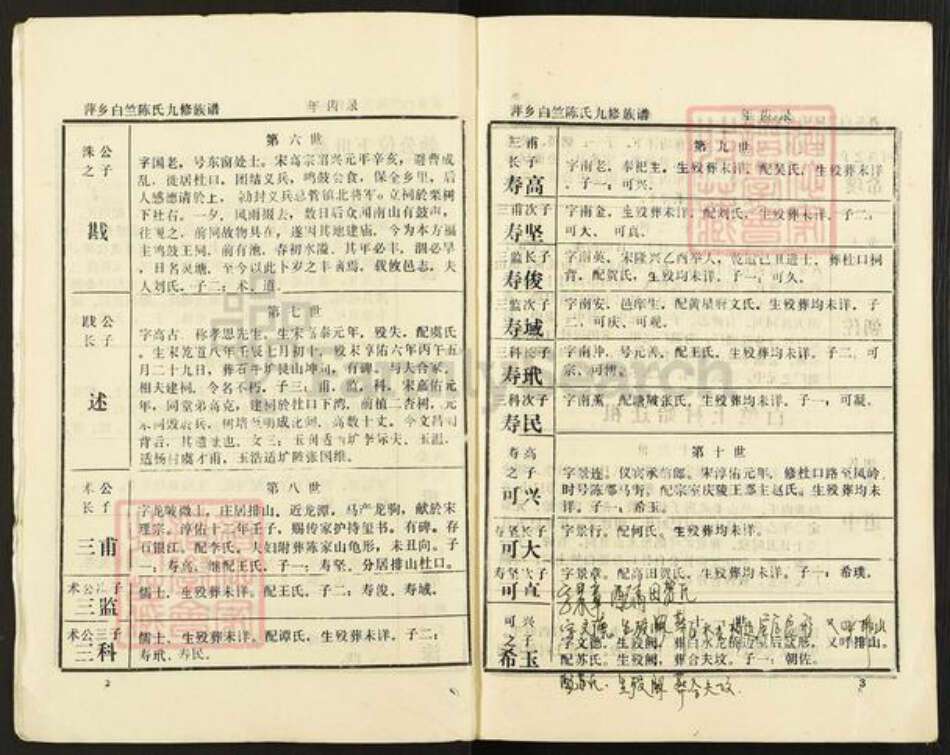 萍乡白竺陈氏九修族谱
洙公
之子
戡
第六世
字国老，号东南处士。宋高宗绍兴元年辛亥，避曹成
乱，徙居杜口，团结义兵，鸣鼓会食，保全乡里，后
人感德请於上，
封义兵总管镇北将军。立祠於栗树
下社右。一夕，风雨掇去，数日后众闻南山有鼓声，
往观之，前祠故物具在，遂因其地建庙，今为本方福
主鸣鼓王祠，前有池，春初水溢，其年必丰，涸必旱
，日名灵塘，至今以此卜岁之丰
载
邑志，夫
人刘氏。子二：术、道。
戡公
长子
述
第七世
字高古，称孝思先生，生宋嘉泰元年，殁失，配虞氏
八年壬辰七月初十，殁宋淳佑六年丙午五
月二十九日，葬石牛圹艮山坤向，有碑。
相夫建祠，令名不朽。子三：甫，监，科。宋嘉佑元
年，同堂弟高克，建祠於杜口下湾，前植二杏树，元
高数十丈，今文昌
背后，其遗址也，女三：
适杨村虞才甫、玉浩适圹陂张国维。
术公
长子
三甫
第八世
字龙陂微上，庄居排山，近龙潭，马产龙驹，献於宋
理宗，淳佑十二年壬子，赐传家护持玺书。有碑。存
石银江。配李氏，夫妇附葬陈家山龟形，未丑向。子
一：寿高，继配王氏，子一：寿坚，分居排山杜口。
术公次子
三监
儒士，生殁葬未详。配王氏。子二：寿浚，寿城。
术公三子
三科
儒士，生殁葬未详，配谭氏，生殁葬未详。子二：
寿玳、寿民。
2
萍乡白竺陈氏九修族谱
三甫
长子
寿高
第九世
字南老，奉祀主，生殁葬未详，配吴氏，生殁葬未详
，子一：可兴。
三甫次子
寿坚
字南金，生殁葬未详，配刘氏，生殁葬未详，子二：
可大、可真。
三监长子
寿俊
字南英，宋隆兴乙酉举人，乾道己丑进士，葬杜口祠
背，配贺氏，生殁均未详，子一：可久。
三监次子
寿域
字南安，邑庠生，配黄星府文氏，生殁葬均未详，子
二，可庆、可观。
三科长子
寿玳
字南坤，号元善，配王氏，生殁葬均未详，子二，可
宗、可博。
三科次子
寿民
字南薰，配塘陂张氏，生殁葬均未详，子一：可凝。
寿高
之子
可兴
第十世
字景连，仪宾承信郎。宋淳佑元年，修杜口路至凤岭
，时号陈郡马街，配宗室庆陵王郡主赵氏。生殁葬均未
详，子一：希玉。
寿坚长子
可大
字景行。配何氏。生殁葬均未详。
寿坚次子
可真
字景章。配高田贺氏，生殁葬均未详。子一：希璞。
可兴
之子
希玉
字文德，生殁阙，葬白水龙
屋后盆形，又呼排山。
配苏氏。生殁阙，葬合夫坟。子一：朝佐。
3